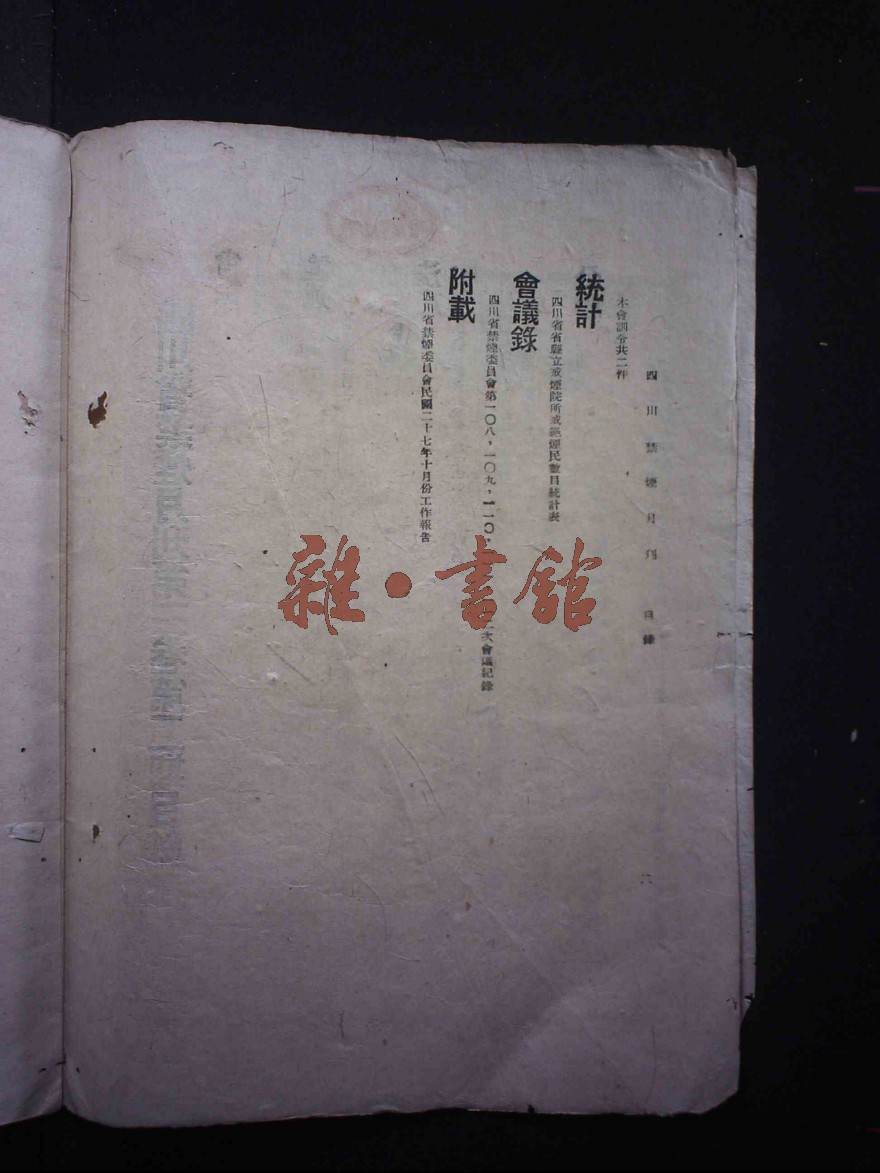 四川禁煙月刊　目錄
本會訓令共二件
統計
四川省省縣立戒煙院所戒絕煙民數目統計表
會議錄
四川省禁煙委員會第一〇八，一〇九，一一〇，
次會議紀錄
附載
四川省禁煙委員會民國二十七年十月份工作報告
雜・書館